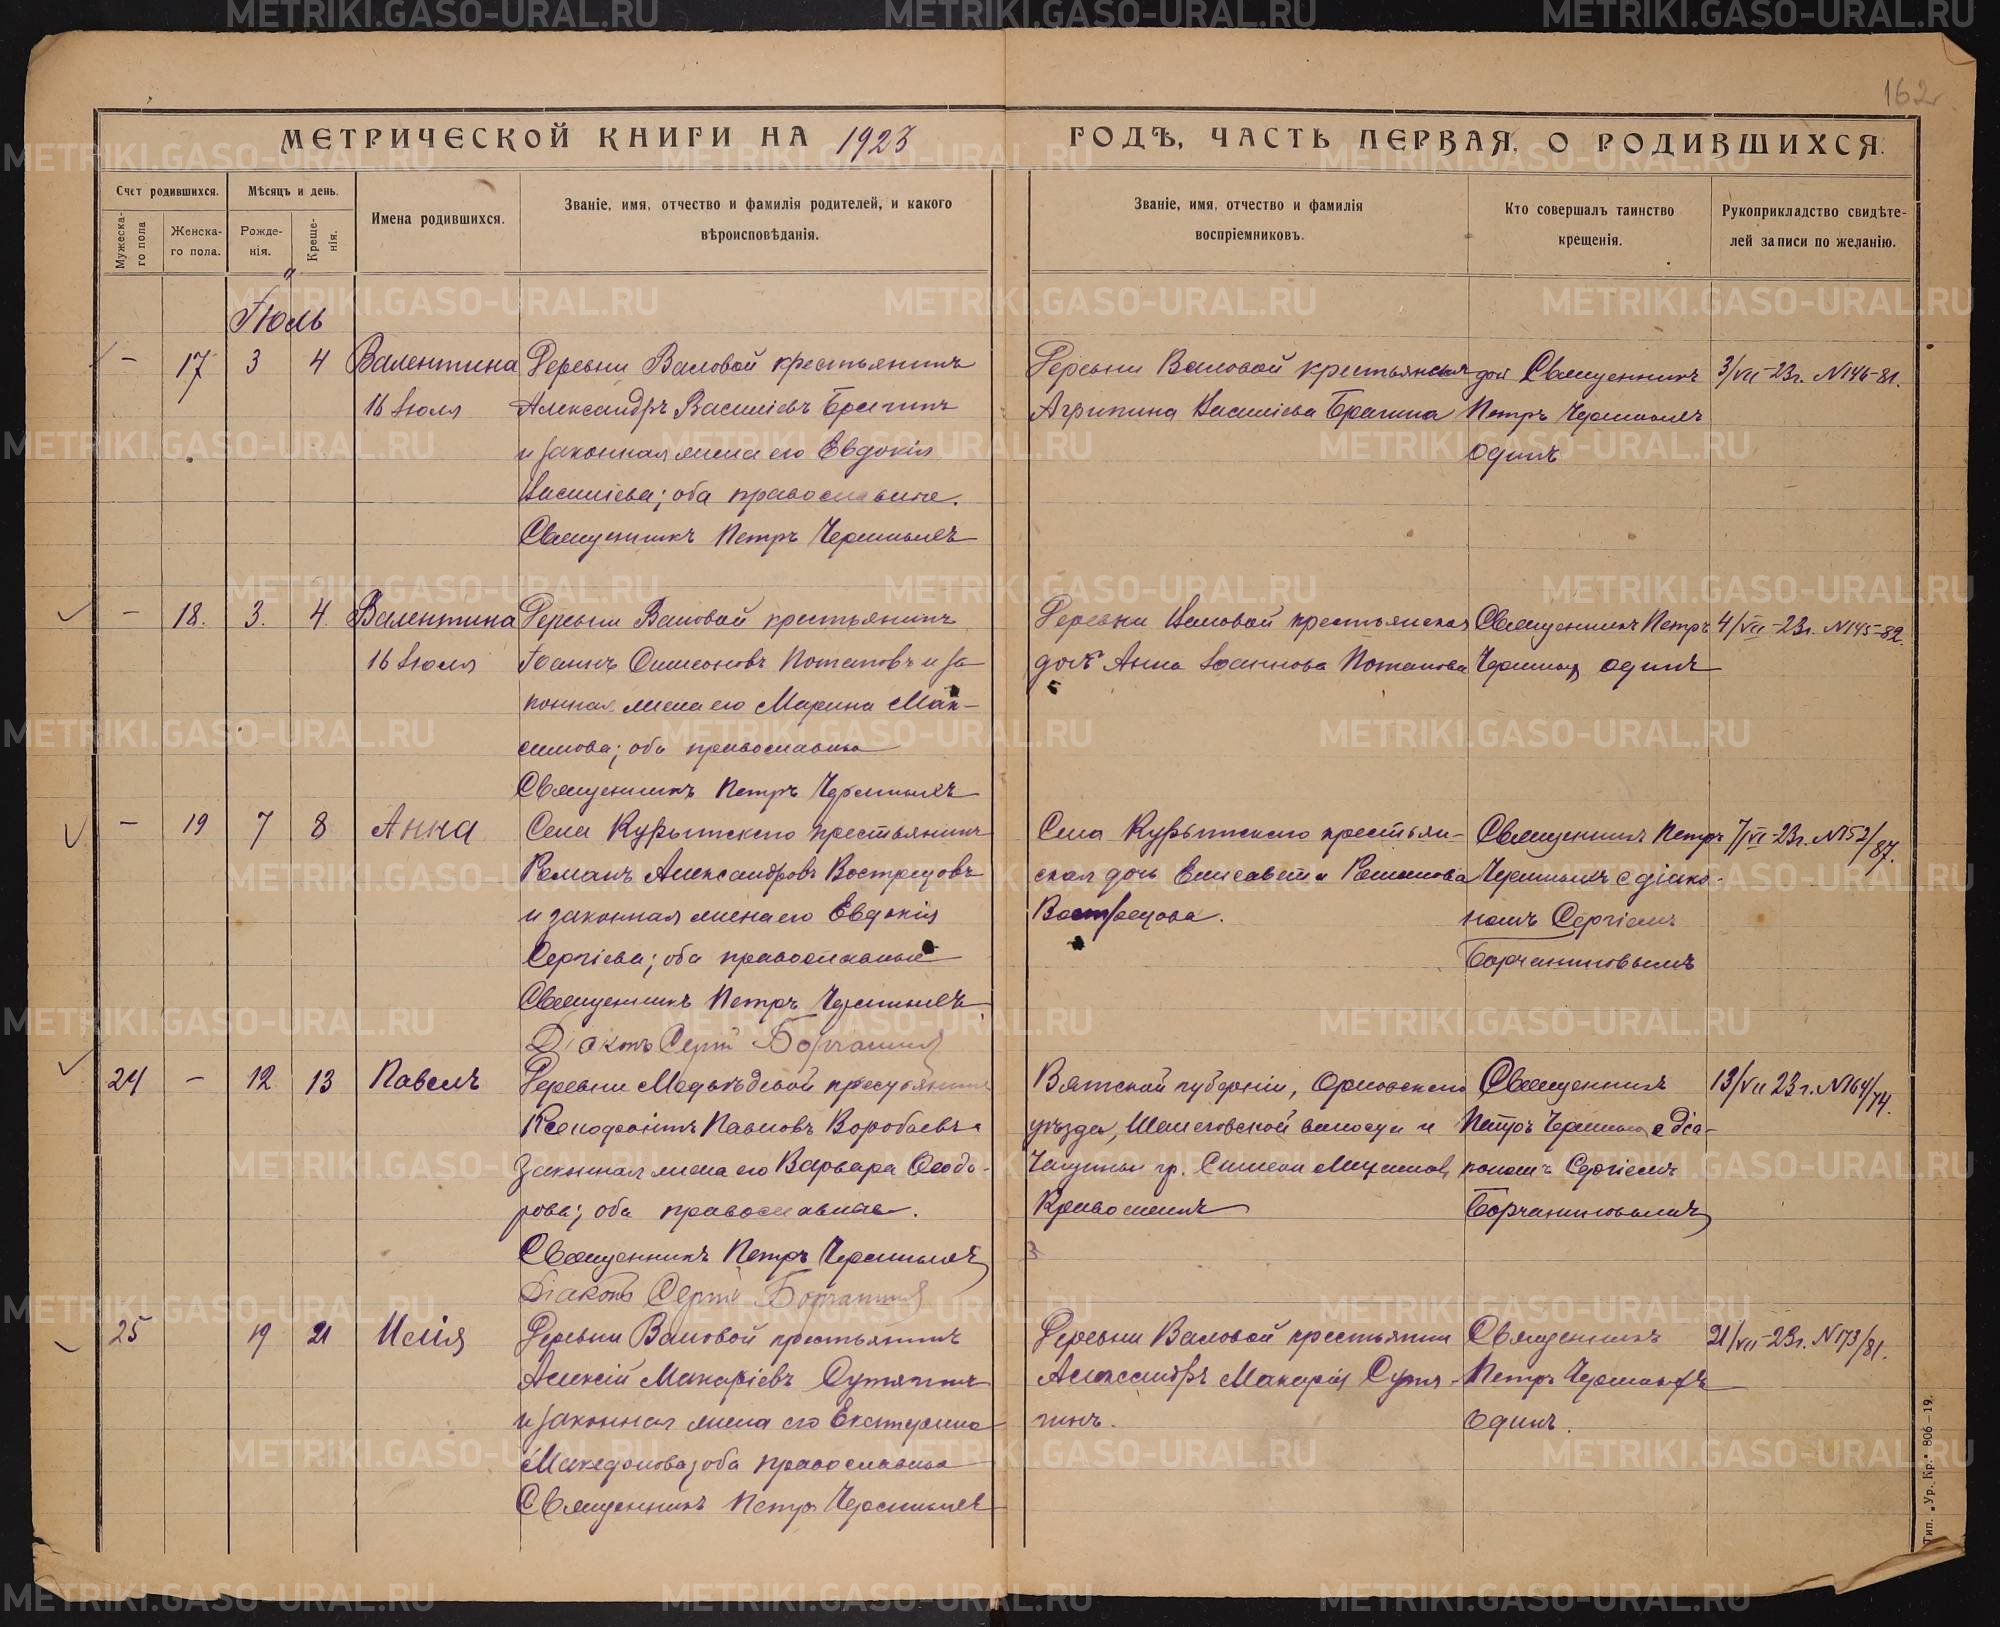 162
МЕТРИЧЕСКОЙ КНИГИ НА 1923
ГОДЪ, ЧАСТЬ ПЕРВАЯ, О РОДИВШИХСЯ.
Счет родившихся.
Мужеска-
го пола
Женска-
го пола.
Мѣсяцъ и день.
Рожде-
нія.
Креще-
нія.
Имена родившихся.
Званіе, имя, отчество и фамилія родителей, и какого
вѣроисповѣданія.
Званіе, имя, отчество и фамилія
воспріемниковъ.
Кто совершалъ таинство
крещенія.
Рукоприкладство свидѣте-
лей записи по желанію.
Іюль
– 17 3 4
Валентина
16 Іюля
Деревни Валовой крестьянинъ
Александръ Василіевъ Брагинъ
и законная жена его Евдокія
Василіева; оба православные.
Священникъ Петръ Черемныхъ
Деревни Валовой крестьянская дочь
Агрипина Василіева Брагина
Священникъ
Петръ Черемныхъ
одинъ
3/VII-23г. №146-81.
– 18. 3. 4.
Валентина
16 Іюля
Деревни Валовой крестьянинъ
Іоаннъ Симеоновъ Потаповъ и за-
конная жена его Марина Мак-
симова; оба православные
Священникъ Петръ Черемныхъ
Деревни Валовой крестьянская
дочь Анна Іоаннова Потапова
Священникъ Петръ
Черемныхъ одинъ
4/VII-23г. №145-82.
– 19 7 8
Анна
Села Курьинскаго крестьянинъ
Романъ Александровъ Вострецовъ
и законная жена его Евдокія
Сергіева; оба православные
Священникъ Петръ Черемныхъ
Діаконъ Сергій Борчанинов
Села Курьинскаго крестьян-
ская дочь Елисавета Романова
Вострецова.
Священникъ Петръ
Черемныхъ с діако-
номъ Сергіемъ
Борчаниновымъ
7/VII-23г. №152/87.
24 – 12 13
Павелъ
Деревни Медвѣдевой крестьянинъ
Ксенофонтъ Павловъ Воробьевъ и
законная жена его Варвара Ѳеодо-
рова; оба православные.
Священникъ Петръ Черемныхъ
Діаконъ Сергій Борчанинов
Вятской губерніи, Орловскаго
уѣзда, волости и
гр. Симеон
Священникъ
Петръ Черемныхъ с діа-
кономъ Сергіемъ
Борчаниновымъ
13/VII 23г. №164/74.
25 19 21
Илія
Деревни Валовой крестьянинъ
Алексій Макаріевъ Сутягинъ
и законная жена его Екатерина
Македонова; оба православные
Священникъ Петръ Черемныхъ
Деревни Валовой крестьянин
Александръ Макаріев Сутя-
гинъ.
Священникъ
Петръ Черемныхъ
одинъ.
21/VII-23г. №173/81.
Тип. „Ур. Кр." 806—19.
METRIKI.GASO-URAL.RU